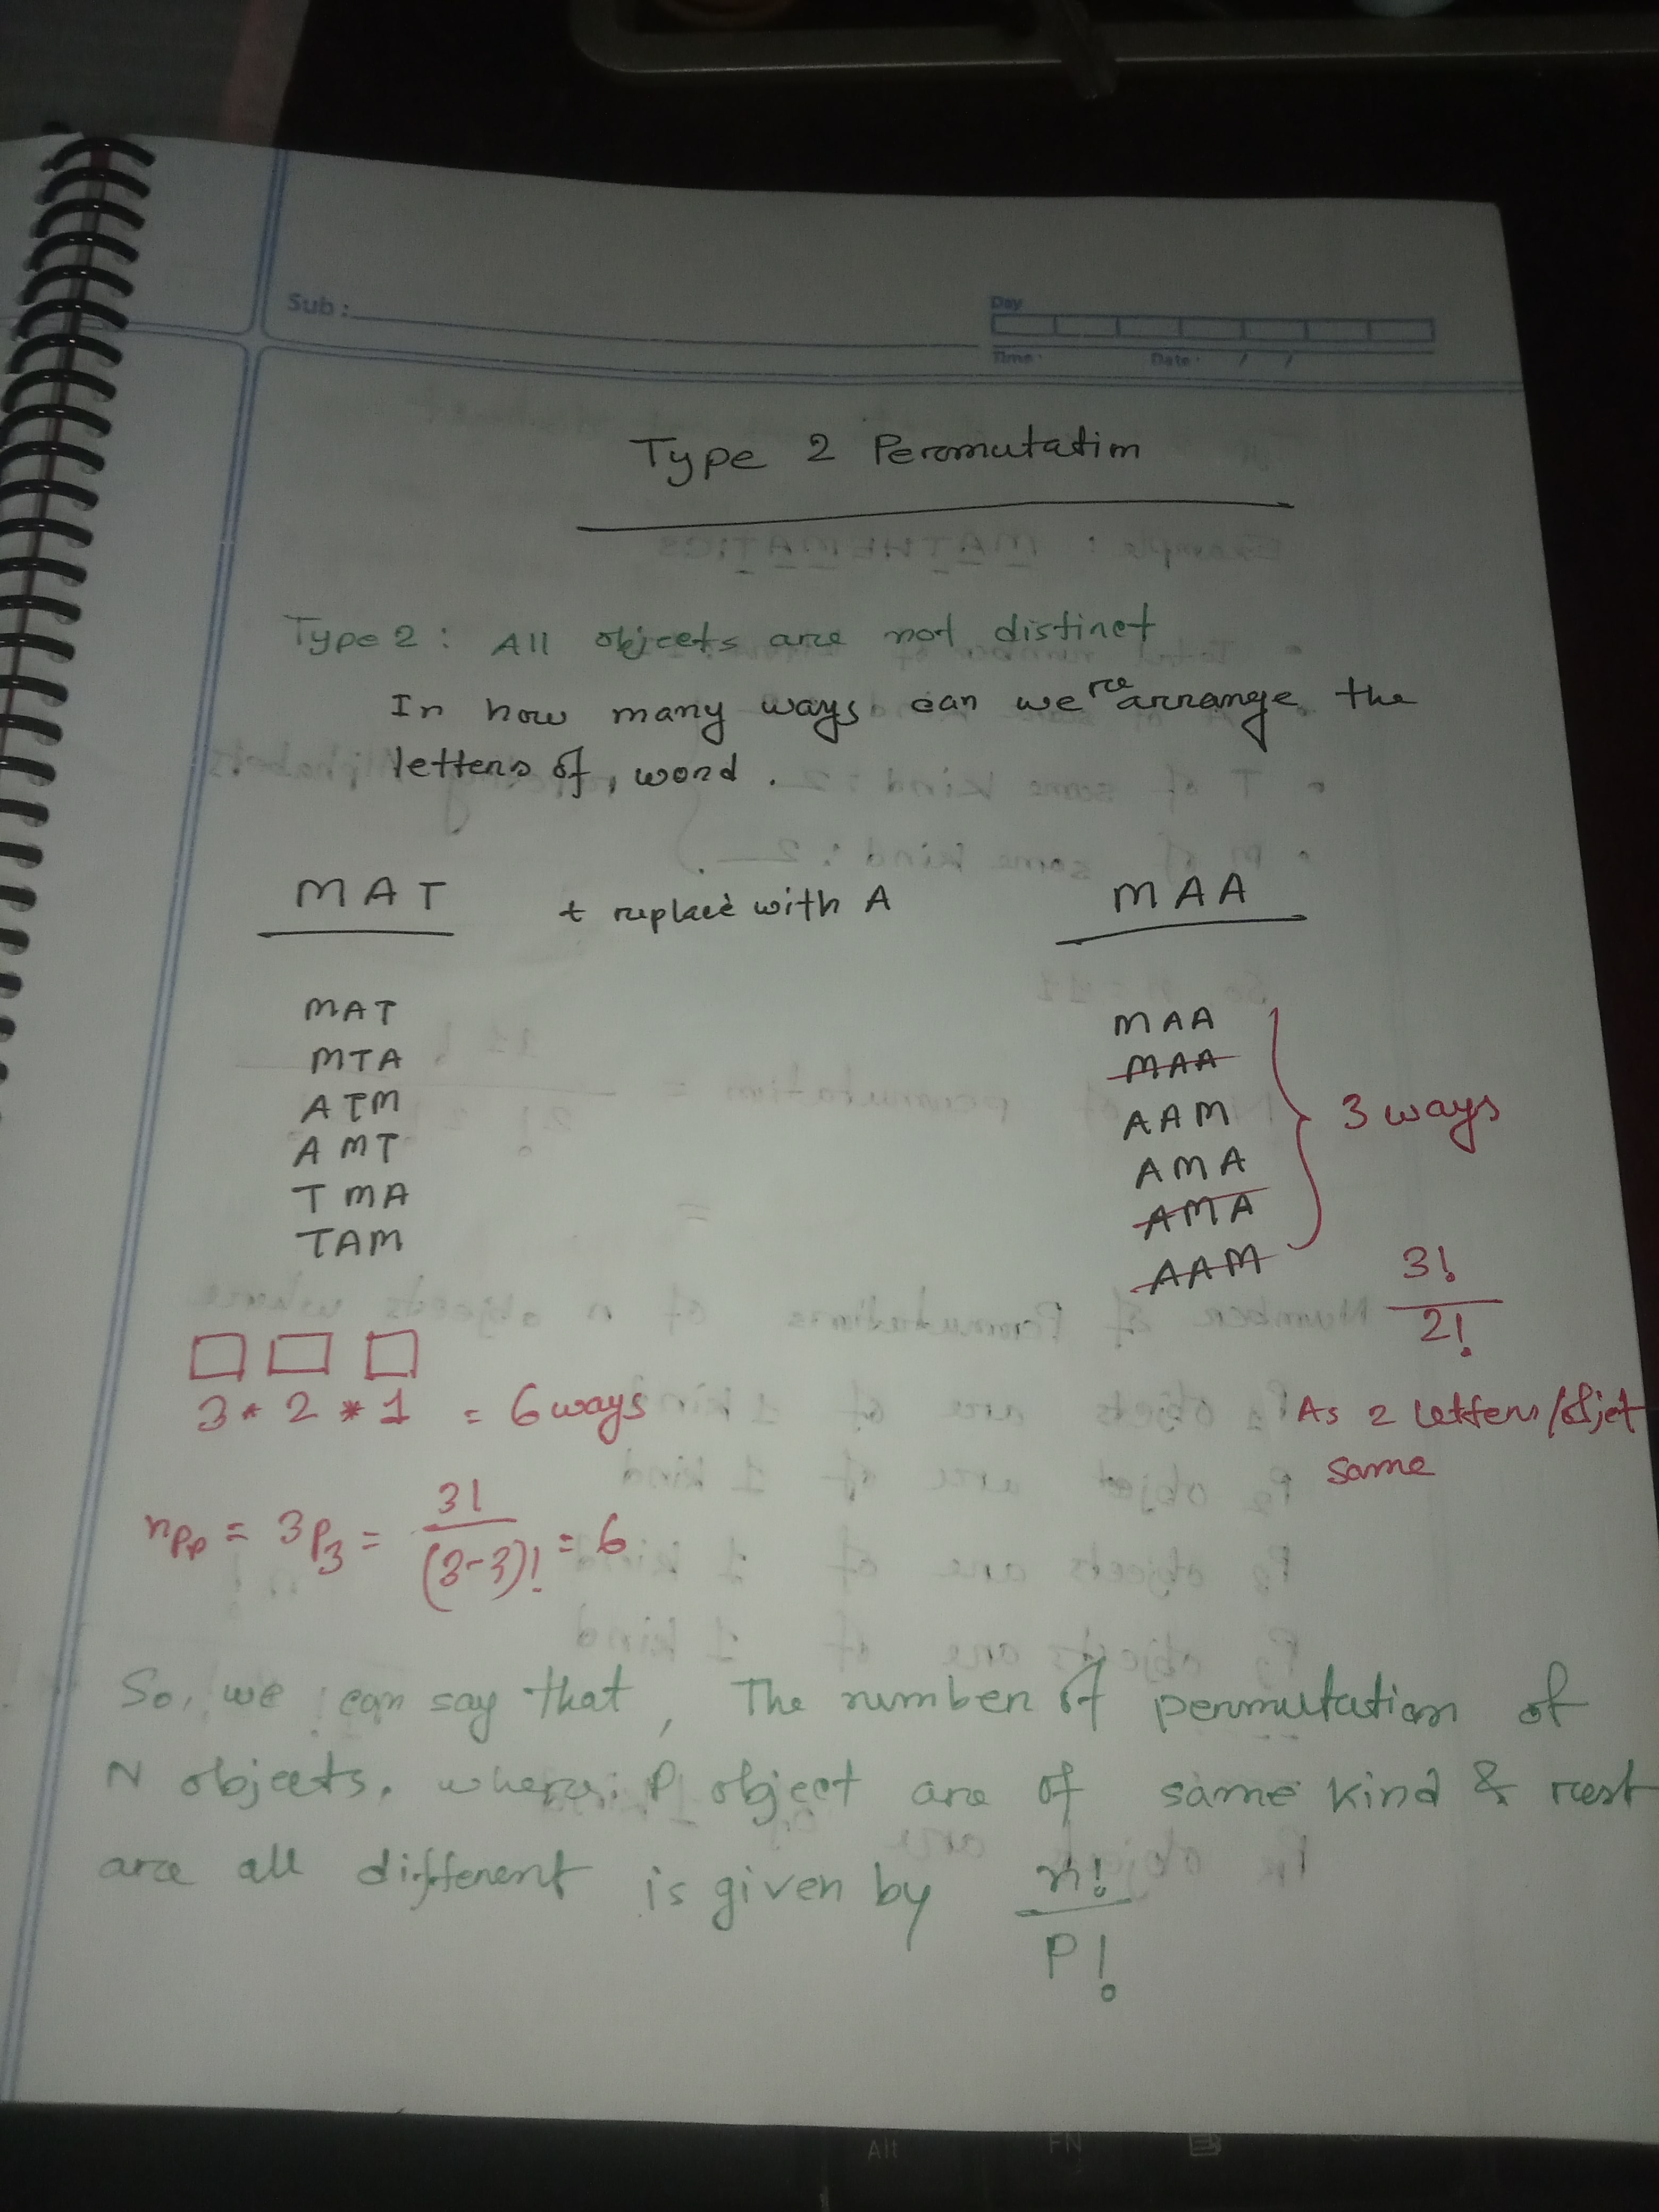 Sub:
Day
Time: Date: / /
Type 2 Permutation
Type 2: All objects are not distinct
In how many ways can we rearrange the
letters of, word.
MAT t replace with A MAA
MAT MAA
MTA MAA
ATM AAM
AMT AMA
TMA AMA
TAM AAM
3 ways
3!/2!
3 * 2 * 1 = 6 ways
As 2 letters/objet
same
nPr = 3P3 = 3!/(3-3)! = 6
So, we can say that, The number of permutation of
N objects. where P object are of same kind & rest
are all different is given by n!/P!
Alt FN